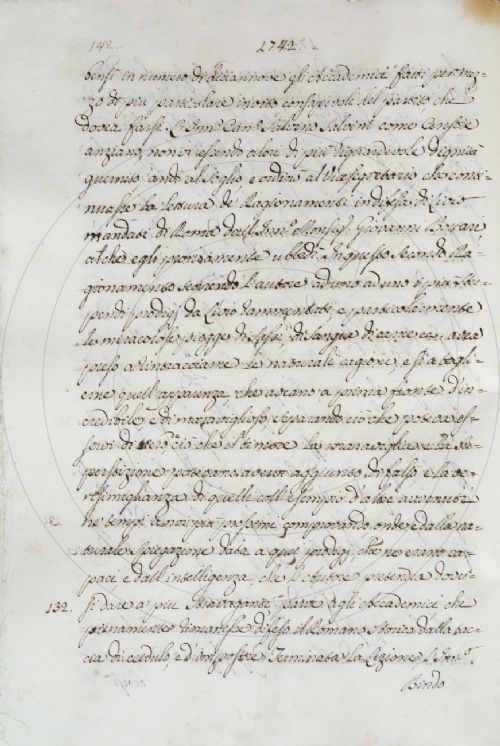 142. 1742.
bensì in numero di diciannove gli Accademici fatti per mez-
zo di più particolare invito consapevoli del partito che
dovea farsi L'Innº. Canº. Salvino Salvini come Censore
anziano, non vi essendo altri di più ragguardevole dignità
guernito andò al Seglio e ordinò al Vicesegretario che conti-
nuasse la lettura de Ragionamenti in difesa di Livio
mandati di Roma dall' Innº. Monsig. Giovanni Bottari
il che egli prontamente ubbidì. In questo secondo Ra-
gionamento scorrendo l'autore ad uno ad uno i più stu-
pendi prodigj da Livio rammentati, e particolarmente
le miracolose piogge di sassi, di sangue di carne
preso a rintracciarne le naturali cagioni, e sì a togli-
erne quell' apparenza che aveano a prima fronte d'in-
credibile, e di maraviglioso, separando ciò che poteva es-
servi di vero, da ciò che il timore la maraviglia e la su-
perstizione potevano avervi aggiunto di falso e la ve-
risimiglianza di quelli coll' esempio d'altri avvenuti
ne tempi a noi più prossimi comprovando, onde e dalla na-
turale spiegazione data a quei prodigj che ne erano ca-
paci e dall' intelligenza, che l'autore pretendea dover-
132. si dare a più stravaganti parve agli Accademici che
pienamente rimanesse difeso il Romano storico dalla tac-
cia di credulo, e d'impostore. Terminata la Lezione, l' Innº.
Bindo